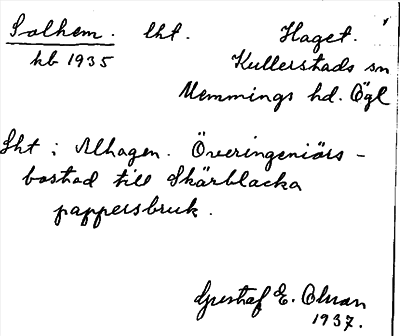 Solhem. lht. Haget.
hb 1935 Kullerstads sn
Memmings hd. Ögl
Lht i Alhagen. Överingeniörs-
bostad till Skärblacka
pappersbruk.
Gustaf E. Olsson
1937.